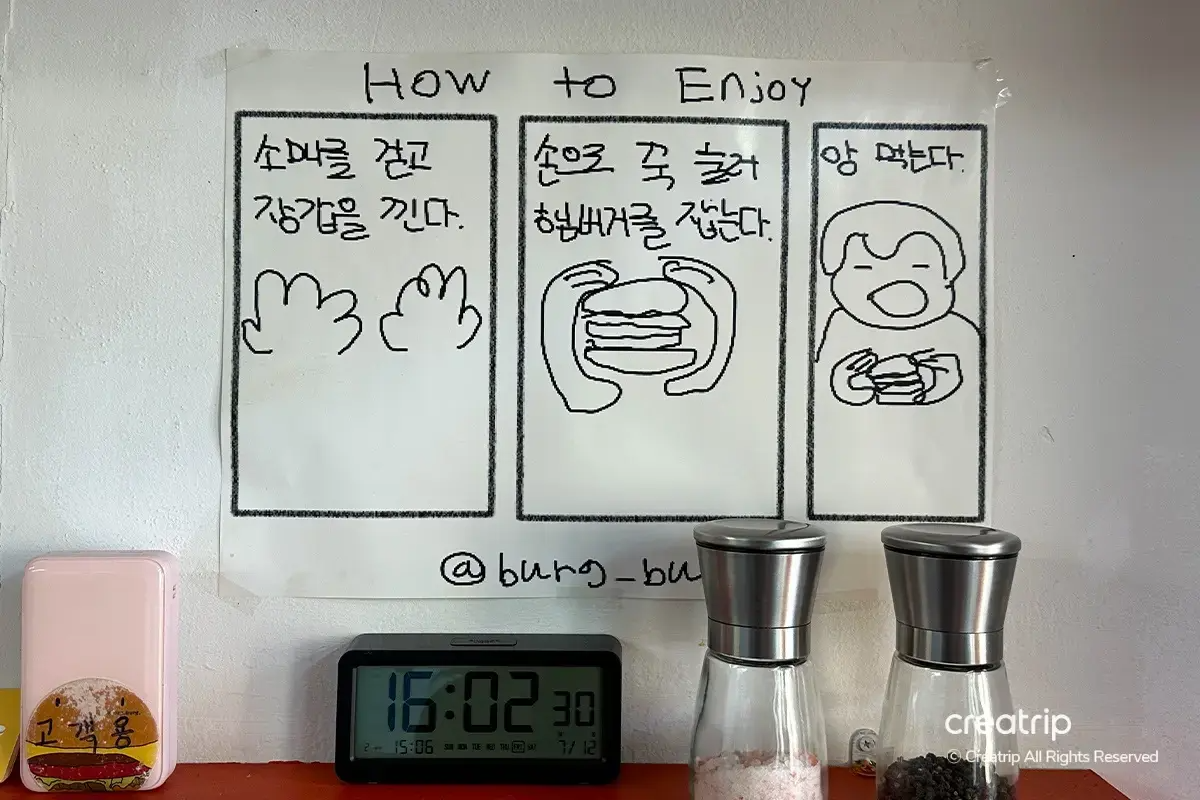 How to Enjoy
소매를 걷고
장갑을 낀다.
손으로 꾹 눌러
햄버거를 잡는다.
앙 먹는다.
@burg_bu
고객용
16:02 30
15:06 SUN MON TUE WED THU FRI SAT 7/12
creatrip
© Creatrip All Rights Reserved